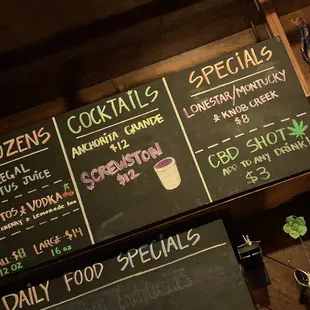 OZENS
EGAL
TUS JUICE
TOS & VODKA
CHERRY + LEMONADE
ALL $8 LARGE $14
12 OZ 16 OZ
COCKTAILS
ANCHORITA GRANDE
$12
SCREWSTON
$12
SPECIALS
LONESTAR/MONTUCKY
& KNOB CREEK
$8
CBD SHOT
ADD TO ANY DRINK!
$3
DAILY FOOD SPECIALS